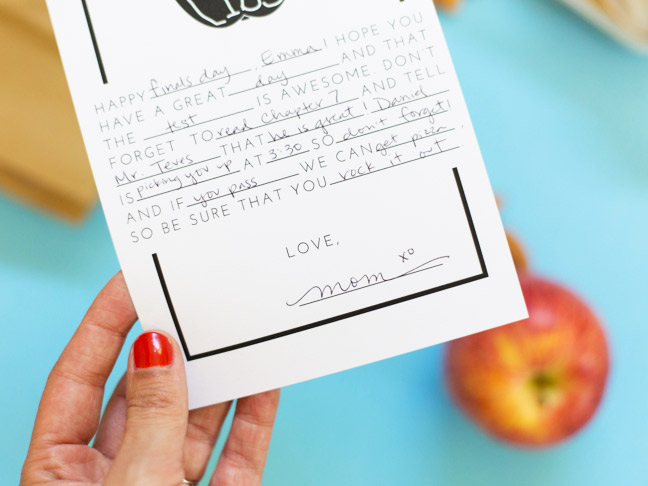 HAPPY finals day, Emma! HOPE YOU
HAVE A GREAT day AND THAT
THE test IS AWESOME. DON'T
FORGET TO read Chapter 7 AND TELL
Mr. Teves THAT he is great! Daniel
IS picking you up AT 3:30 SO don't forget!
AND IF you pass WE CAN get pizza.
SO BE SURE THAT YOU rock it out.
LOVE,
mom xo